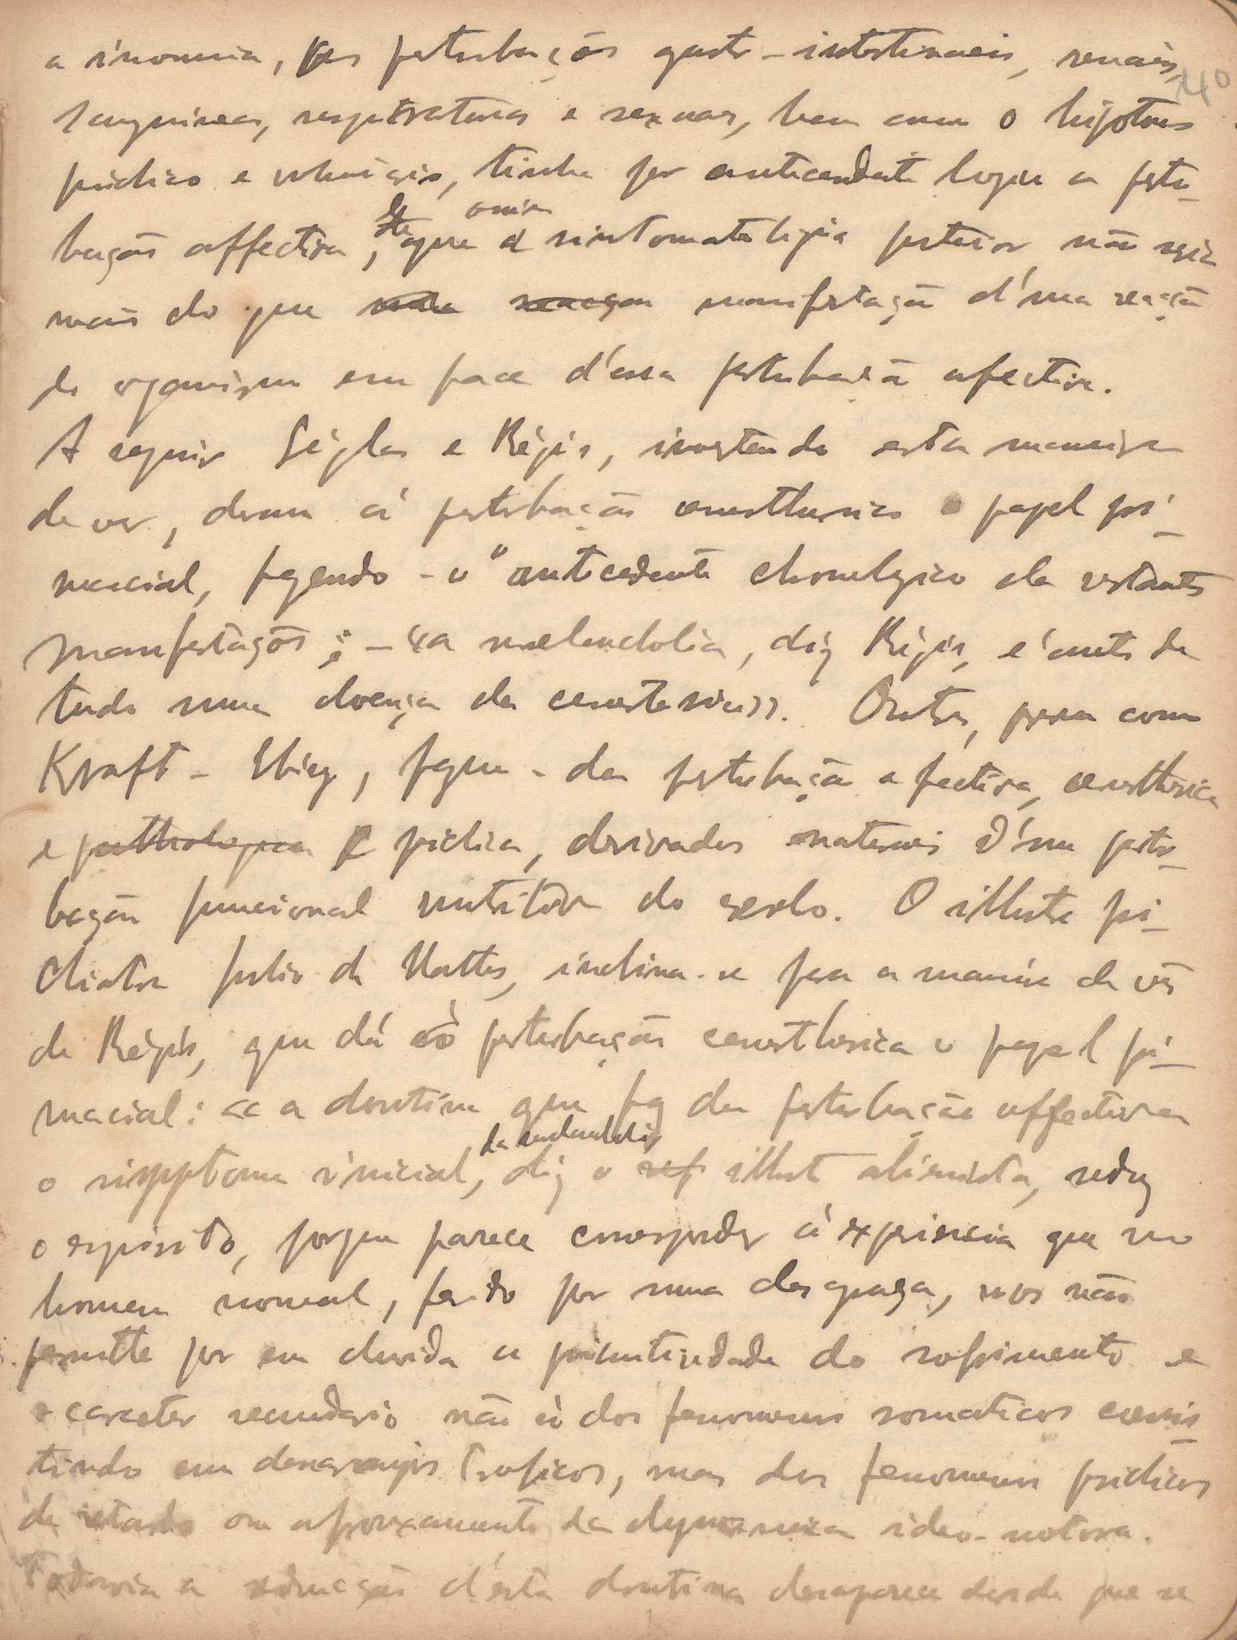 a insomnia, as perturbações gastro-intestinaes, renaes, 40
sanguineas, respiratorias e sexuaes, bem como o
psichico e, tinha por antecendente logico a pertu-
bação affectiva, de que a sintomatologia posterior não seria
mais do que uma reacção manifestação d'uma reacção
do organismo em face d'essa perturbação afectiva.
A seguir Séglas e Régis, invertendo esta maneira
de ver, deram á perturbação cenesthesica o papel pri-
macial, fazendo-o antecedente chronologico das restantes
manifestações: – «a melancholia, diz Régis, é antes de
tudo uma doença da cenestesia». Outros, porem como
Kraft-Ebing, fazem-da perturbação afectiva, cenesthesica
e pathologica psichica, derivados materiaes d'uma pertur-
bação funcional nutritiva do cerebro. O illustre psi-
chiatra Julio de Mattos, inclina-se para a maneira de vêr
de Régis, que dá á perturbação cenesthesica o papel pri-
macial: «a doutrina que faz da perturbação affectiva
o symptoma inicial, da melancholia, diz o illustre alienista, seduz
o espirito, porque parece corresponder á experiencia que no
homem normal, ferido por uma desgraça, nos não
permitte por em duvida a primitividade do sofrimento e
o caracter secundario não só dos fenomenos somaticos consis-
tindo em desarranjos troficos, mas dos fenomenos psichicos
de retardo ou afrouxamento da dynamica ideo-motora.
Todavia a seducção d'esta doutrina desaparece desde que se